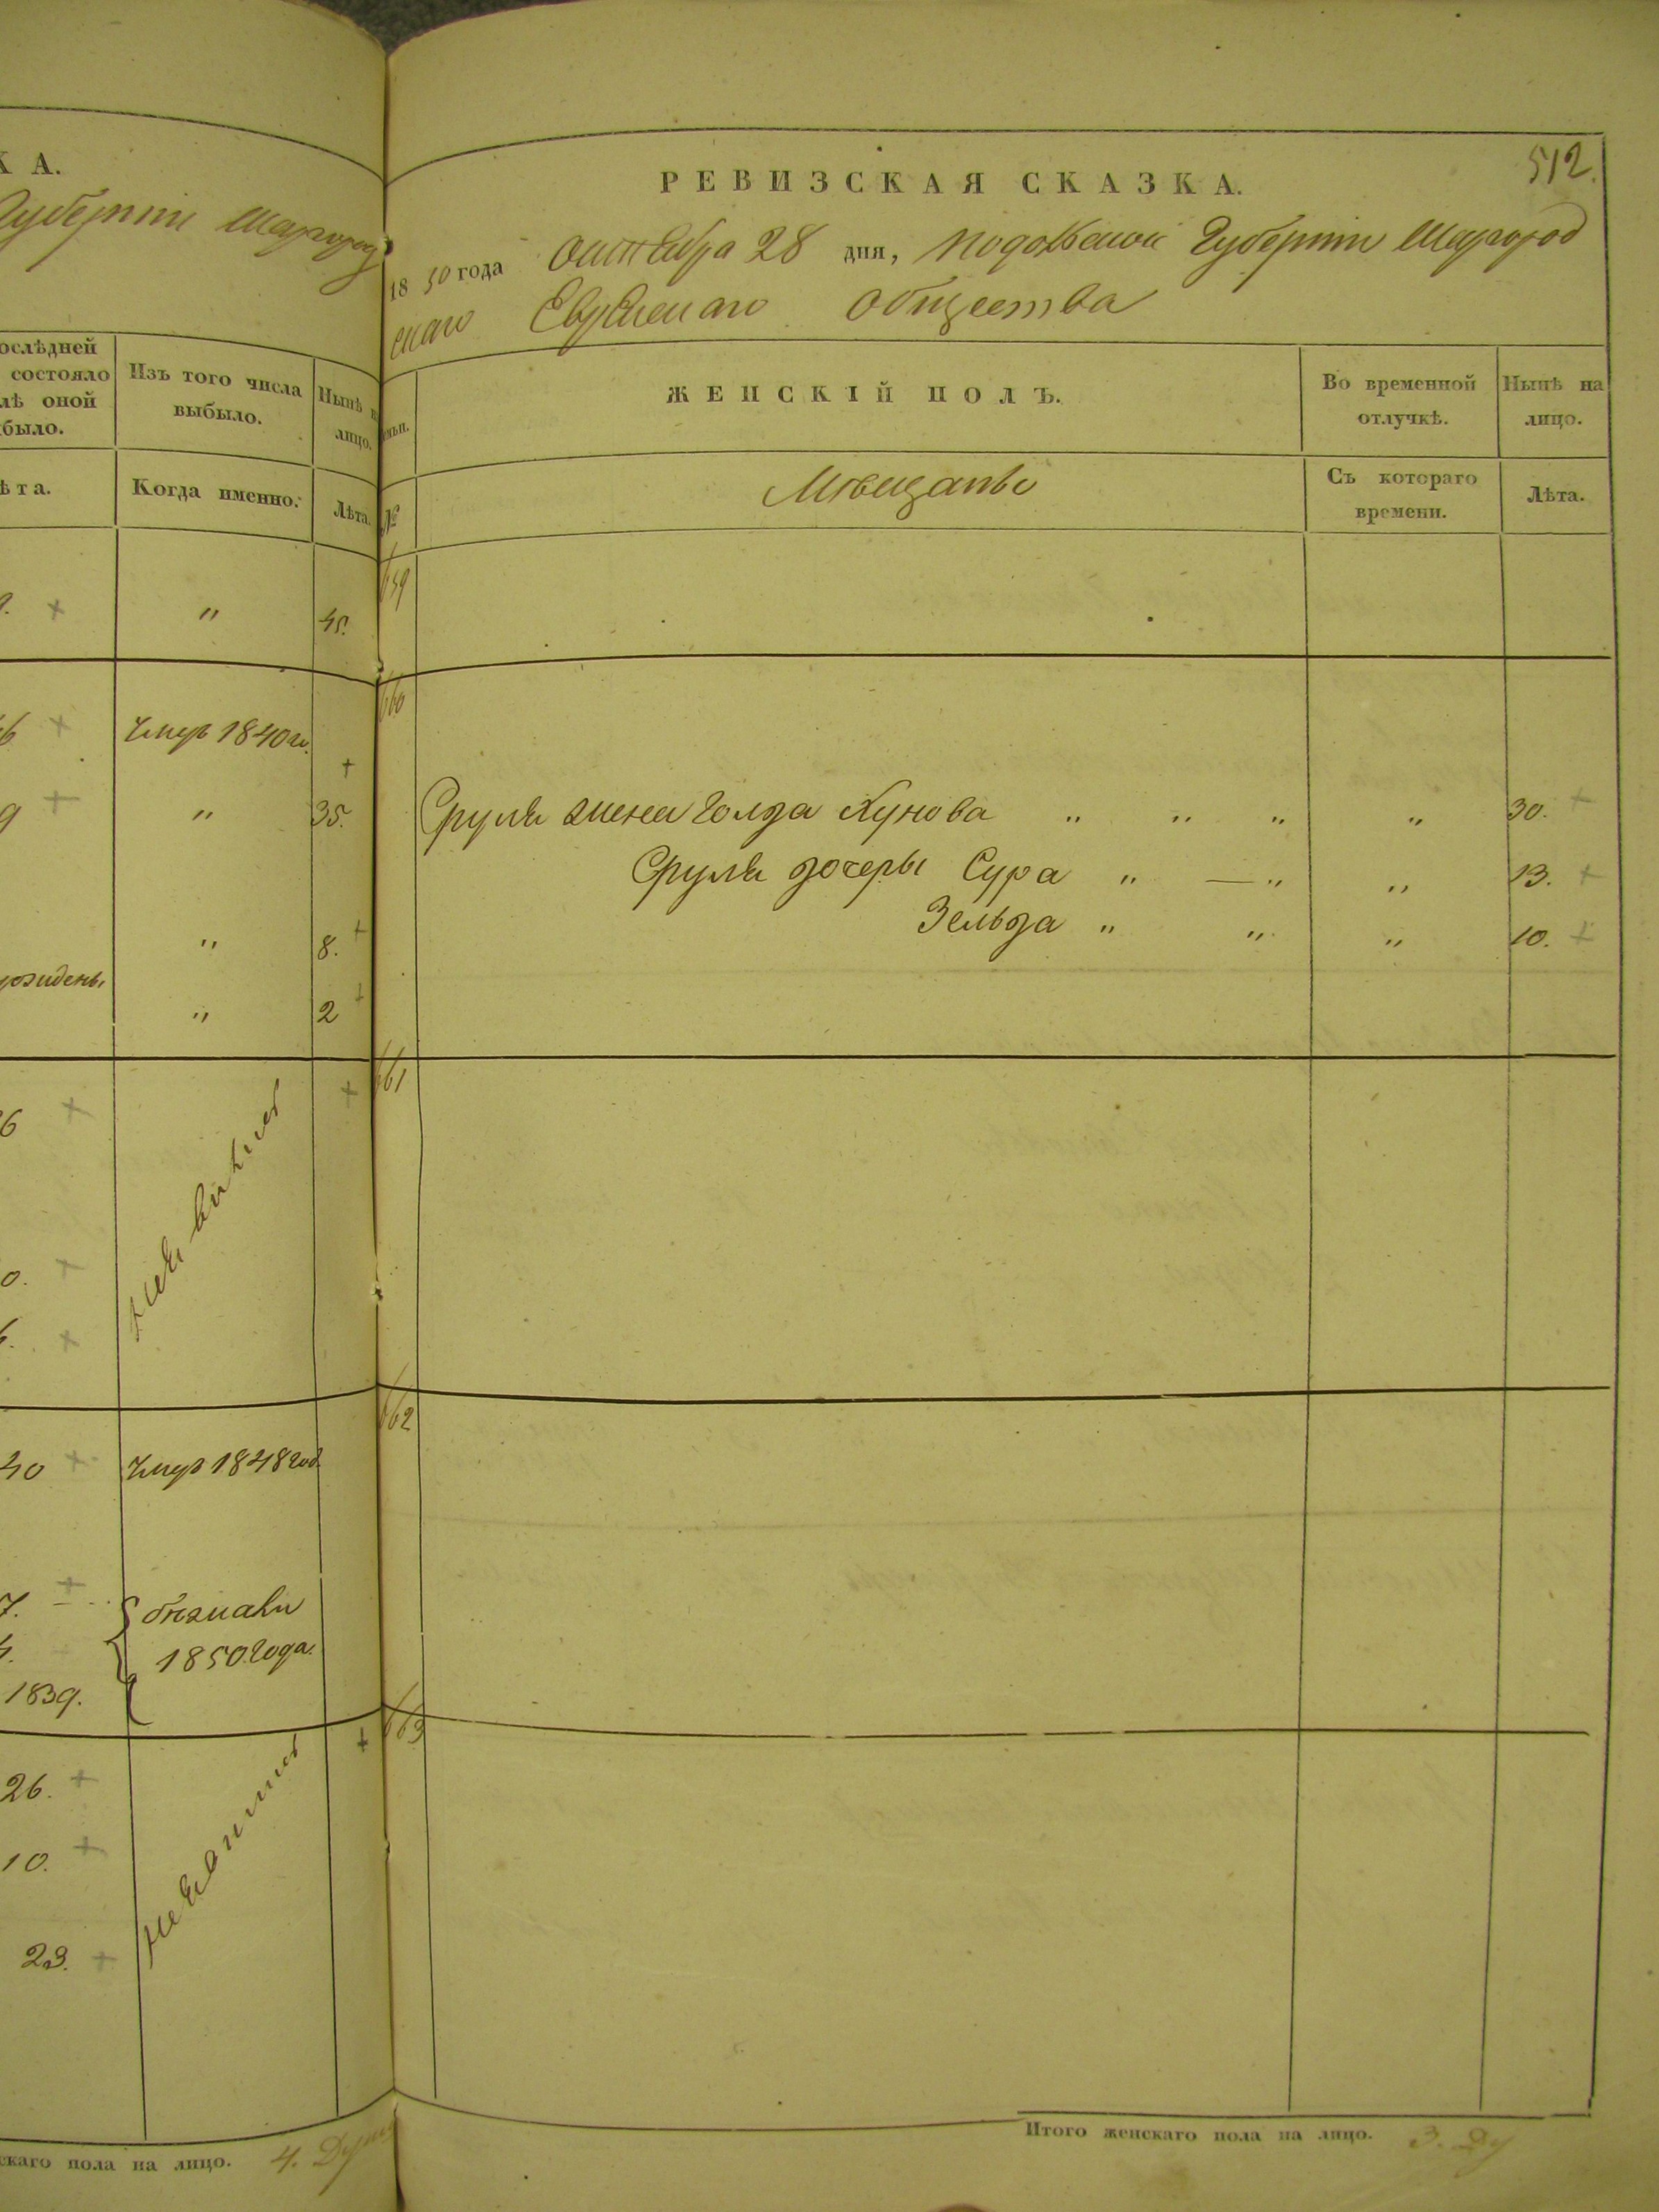 К А.
Губернiи Шаргород
ослѣдней
состояло
лѣ оной
было.
Изъ того числа
выбыло.
Нынѣ н
лицо.
ѣта.
Когда именно.
Лѣта.
+ " 45.
6 + Умеръ 1840 г. +
9 + " 35.
" 8. +
" 2 +
6 + +
0. +
6. +
40 + Умеръ 1848 год.
7. +
1850 года.
1839.
26. + +
10. +
23. +
скаго пола на лицо. 4. Душ
512.
РЕВИЗСКАЯ СКАЗКА.
1850 года Октября 28 дня, Подольской Губернiи Шаргород
скаго Еврейскаго Общества
ЖЕНСКІЙ ПОЛЪ.
Во временной
отлучкѣ.
Нынѣ на
лицо.
№
Мѣщане
Съ котораго
времени.
Лѣта.
659
660
Сруля жена Голда Хунова " " " " 30. +
Сруля дочеры Сура " — " " 13. +
Зельда " " " 10. +
661
662
663
Итого женскаго пола на лицо. 3. Ду